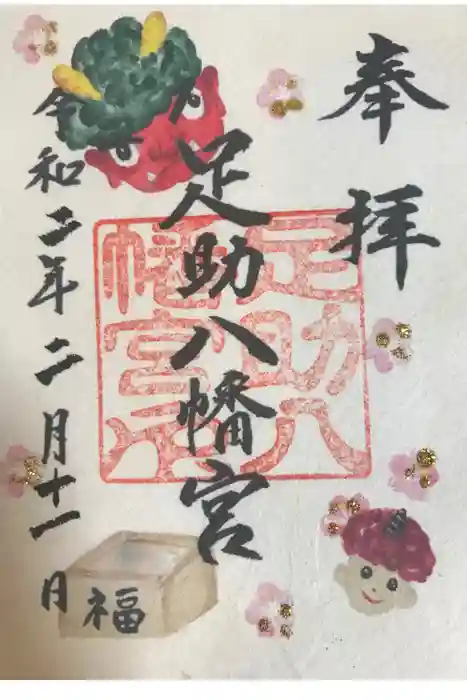 奉拝
足助八幡宮
足助八
幡宮
令和二年二月十一日
福